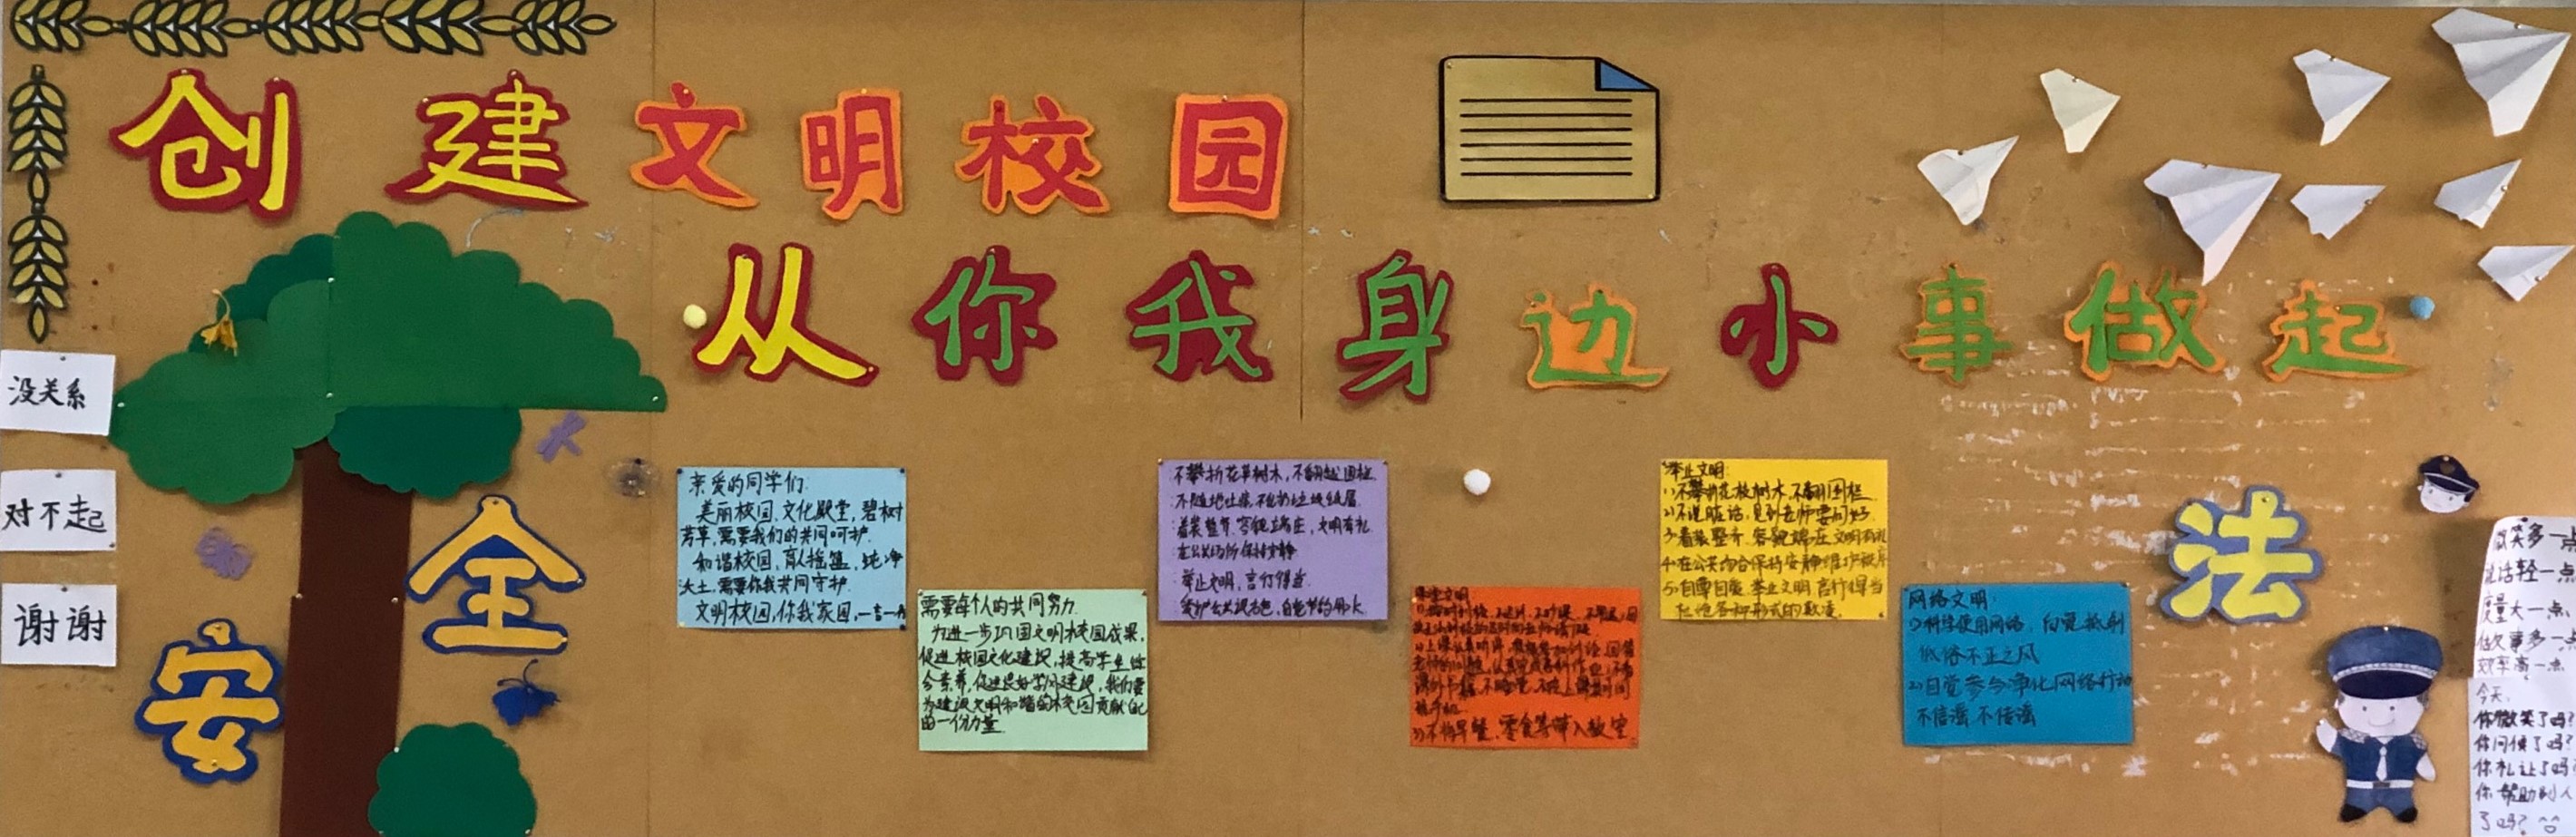 创建文明校园
从你我身边小事做起
没关系
对不起
谢谢
安全
亲爱的同学们:
美丽校园,文化殿堂,碧树
芳草,需要我们的共同呵护.
和谐校园,育人摇篮,纯净
沃土,需要你我共同守护.
文明校园,你我家园,一言一
需要每个人的共同努力.
为进一步巩固文明校园成果,
促进校园文化建设,提高学生综
合素养,促进良好学风建设,我们要
为建设文明和谐的校园贡献自己
的一份力量.
不攀折花草树木,不翻越围栏.
不随地吐痰,不乱扔垃圾纸屑.
着装整齐,容貌端庄,文明有礼.
在公共场所保持安静
举止文明,言行得当.
课堂文明
3)不将早餐、零食等带入教室.
举止文明:
1)不攀折花枝树木,不翻围栏.
2)不说脏话,见到老师要问好.
3)着装整齐.容貌端庄文明有礼
4)在公共场合保持安静维护秩序
5)自尊自爱,举止文明,言行得当
网络文明:
1)科学使用网络,自觉抵制
低俗不正之风
2)自觉参与净化网络行动
不信谣 不传谣
法
微笑多一点
说话轻一点
度量大一点
做事多一点
效率高一点
今天,
你微笑了吗?
你问候了吗?
你礼让了吗?
你帮助别人
了吗?